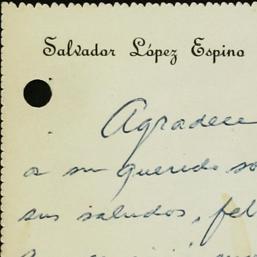 Salvador López Espino
Agradece
a su querido so
sus saludos, fel